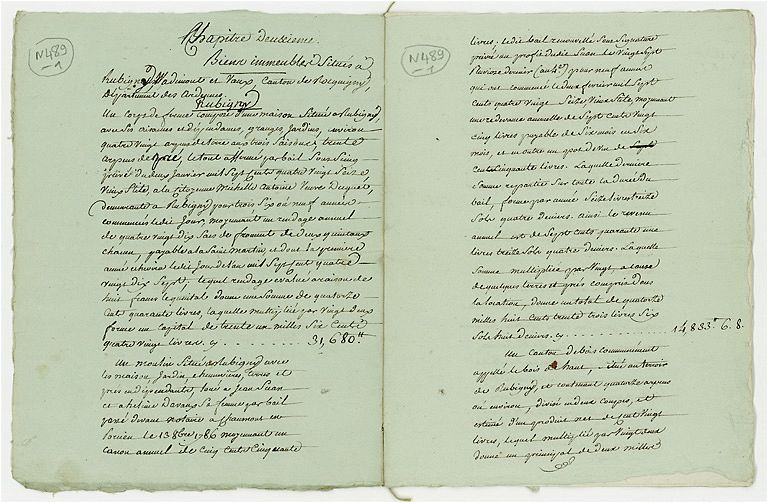 N489
-1
Chapitre Deuxieme.
Biens immeubles Situés à
Rubigny Wadimont et Vaux Canton de Rocquigny,
Département des Ardennes.
Rubigny
Un Corps de ferme Composé d'une maison Située à Rubigny,
avec Ses aisances et dépendances, granges Jardins, environ
quatre Vingt arpens de terre aux trois Saisons, trente
arpens de pré, le tout affermé par bail Sous Seing
privé du deux Janvier mil Sept Cents quatre Vingt Seize
Vieux Stile, à la Citoyenne Michelle Antoine Veuve
demeurante à Rubigny pour trois Six ou neuf années
commencées ledit Jour, moyennant un rendage annuel
de quatre Vingt dix Sacs de froment de deux quintaux
chacun, payable à la Saint Martin, et dont la première
année échera ledit Jour de l'an mil Sept Cent quatre
Vingt dix Sept, lequel rendage évalué à raison de
huit francs le quintal donne une Somme de quatorze
Cents quarante livres, laquelle multipliée par Vingt deux
forme un Capital de trente un milles Six Cents
quatre Vingt livres. cy . . . . . . . . . . . 31,680.
Un moulin Situé à Rubigny avec
les maison, Jardin, chenevière, terres et
prés en dépendants, loué à Jean Suan
et à helène Davaux Sa femme par bail
passé devant notaire à Chaumont en
Porcien le 13 8bre 1786 moyennant un
canon annuel de Cinq Cents Cinquante
N489
-1
livres. ledit bail renouvellé Sous Signature
privée au profit dudit Suan le Vingt Sept
Pluviose dernier pour neuf années
qui ont commencé le deux fevrier mil Sept
Cents quatre Vingt Seize, Vieux Stile, moyennant
une redevance annuelle de Sept Cents Vingt
Cinq livres payable de Six mois en Six
mois, et en outre un pot de Vin de
Cent Cinquante livres. Laquelle dernière
Somme repartie Sur toute la durée du
bail, forme par année Seize livres treize
Sols quatre deniers. ainsi le revenu
annuel est de Sept Cents quarante une
livres treize Sols quatre deniers. Laquelle
Somme multipliée par Vingt, à cause
de quelques terres et prés compris dans
la location, donne un total de quatorze
milles huit Cents trente trois livres Six
Sols huit deniers. cy . . . . . . . . . . . 14833. 6. 8.
Un Canton de bois communément
appellé le bois d'hault, Situé au terroir
de Rubigny, et contenant quatorze arpens
ou environ, divisé en deux Coupes, et
estimé d'un produit net de Cent Vingt
livres, lequel multiplié par Vingt deux
donne un principal de deux milles